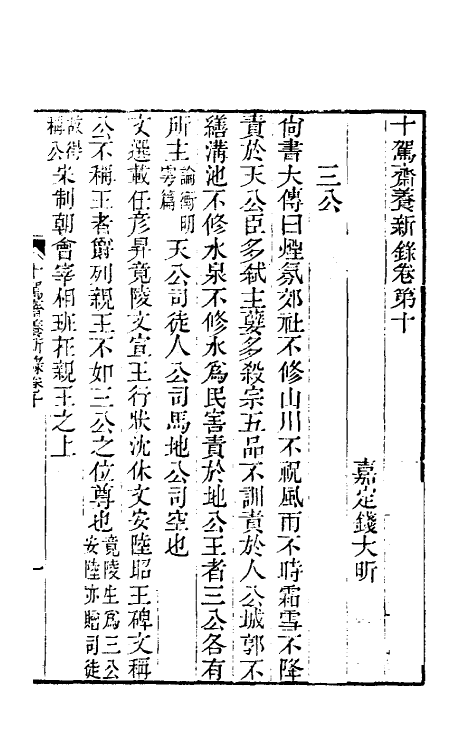 十駕齋養新錄卷第十
嘉定錢大昕
三公
尙書大傳曰煙氛郊社不修山川不祝風雨不時霜雪不降
責於天公臣多弑主孽多殺宗五品不訓責於人公城郭不
繕溝池不修水泉不修水爲民害責於地公王者三公各有
所主論衡明雩篇天公司徒人公司馬地公司空也
文選載任彥昇竟陵文宣王行狀沈休文安陸昭王碑文稱
公不稱王者爵列親王不如三公之位尊也竟陵生爲三公安陸亦贈司徒
故得稱公宋制朝會宰相班在親王之上
十駕齋養新錄卷十
一